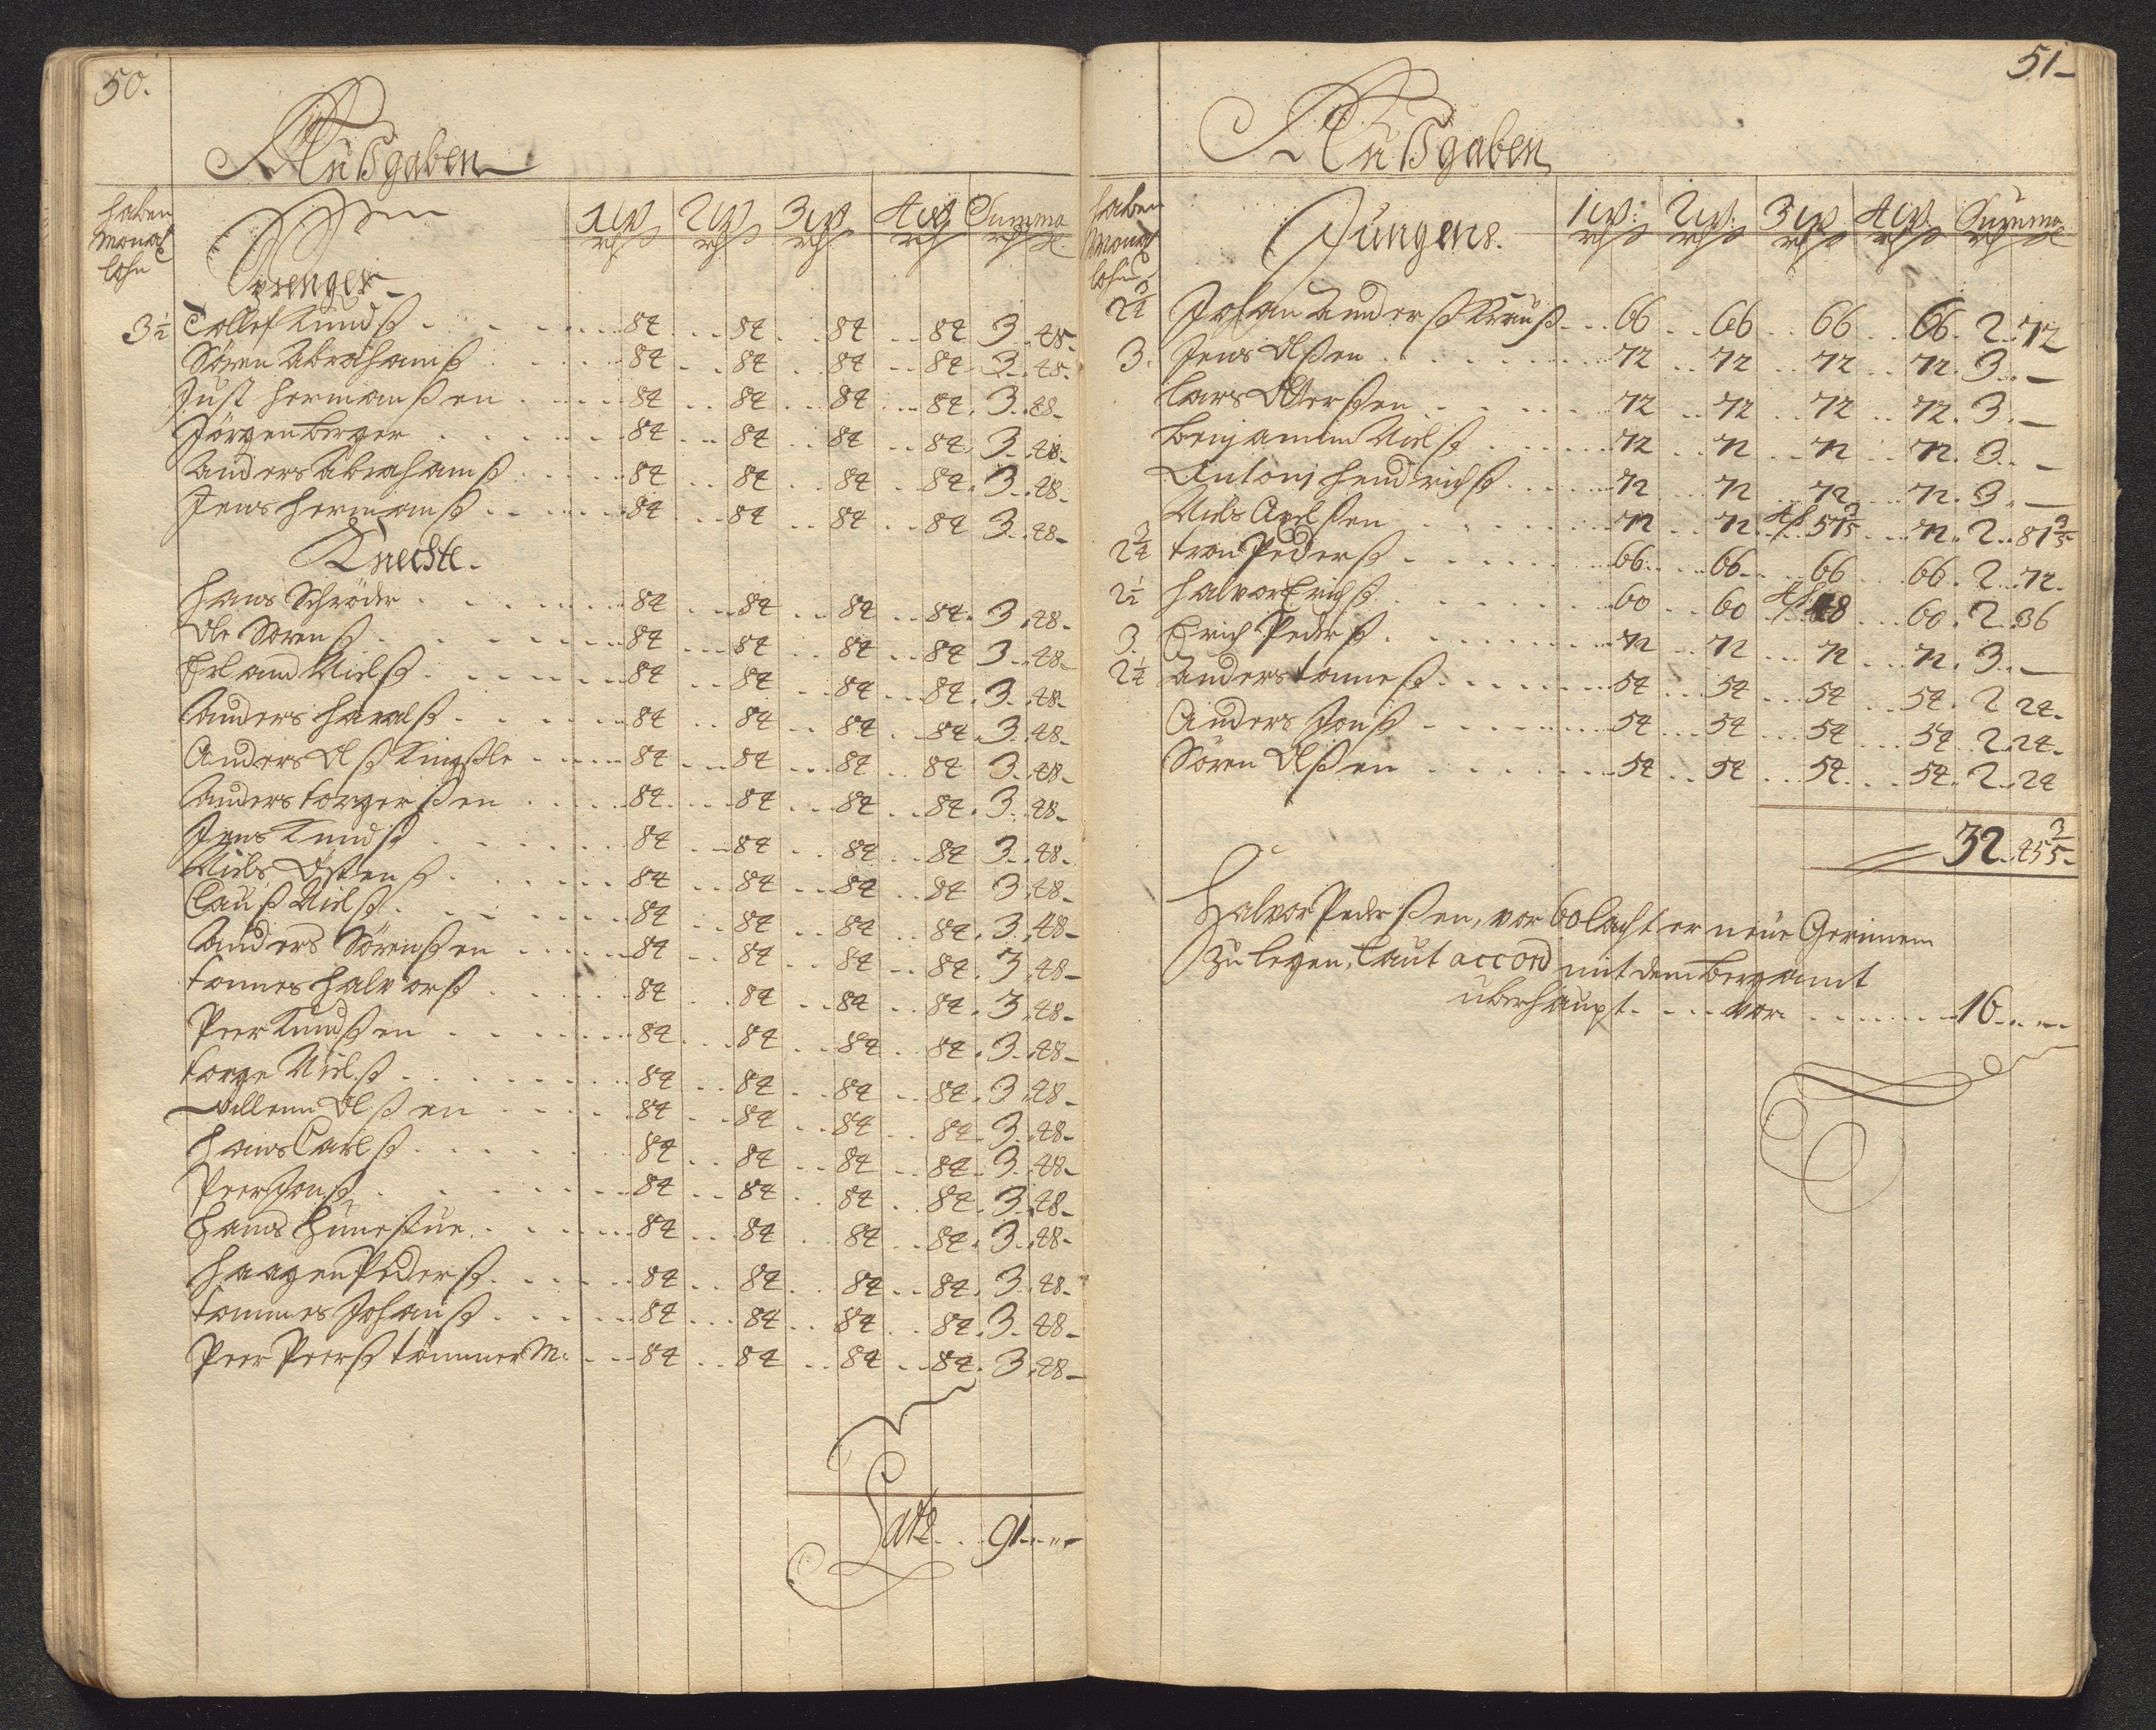 50.
Außgaben
haben Monat lohn
1 W 2 W 3 W 4 W Summa
rh ß rh ß rh ß rh ß rh ß
Drenger
3½ Tollef Knudß 84 84 84 84 3 48
Sören Abrahamß 84 84 84 84 3 48
Just Hermanßen 84 84 84 84 3 48
Jörgen Berger 84 84 84 84 3 48
Anders Abrahamß 84 84 84 84 3 48
Jens Hermanß 84 84 84 84 3 48
Knechte
Hans Schröder 84 84 84 84 3 48
Ole Sörenß 84 84 84 84 3 48
Erland Nielß 84 84 84 84 3 48
Anders Haralß 84 84 84 84 3 48
Anders Olß Kingßle 84 84 84 84 3 48
Anders Torgerßen 84 84 84 84 3 48
Jens Knudß 84 84 84 84 3 48
Niels Östenß 84 84 84 84 3 48
Clauß Nielß 84 84 84 84 3 48
Anders Sörenßen 84 84 84 84 3 48
Tonnes Halvorß 84 84 84 84 3 48
Peer Knudßen 84 84 84 84 3 48
Torge Nielß 84 84 84 84 3 48
Willem Olßen 84 84 84 84 3 48
Hans Carlß 84 84 84 84 3 48
Peer Jonß 84 84 84 84 3 48
Hans Hunestue 84 84 84 84 3 48
Haagen Pederß 84 84 84 84 3 48
Tommes Johanß 84 84 84 84 3 48
Peer Peerß tömmer M: 84 84 84 84 3 48
Late 91
51
Außgaben
haben Monat lohn
Jungens. 1 W: 2 W: 3 W 4 W: Summa
rh ß rh ß rh ß rh ß rh ß
2¾ Johan Anderß Krauß 66 66 66 66 2 72
3. Jens Olßen 72 72 72 72 3 —
Lars Olterßen 72 72 72 72 3 —
Benjamin Nielß 72 72 72 72 3 —
Antoni Hendrichß 72 72 72 72 3 —
Niels Axelßen 72 72 4ß 57 3/5 72 2 81 3/5
2¾ Tron Pederß 66 66 66 66 2 72
2½ Halvor Erichß 60 60 4ß 48 60 2 36
3. Erich Pederß 72 72 72 72 3 —
2¼ Anders Tonneß 54 54 54 54 2 24
Anders Jonß 54 54 54 54 2 24
Sören Olßen 54 54 54 54 2 24
32 45 3/5
Halvor Pederßen, vor 60 lachter neüe Gerinnen
zu legen, laut accord mit dem Bergamt
überhaupt vor 16